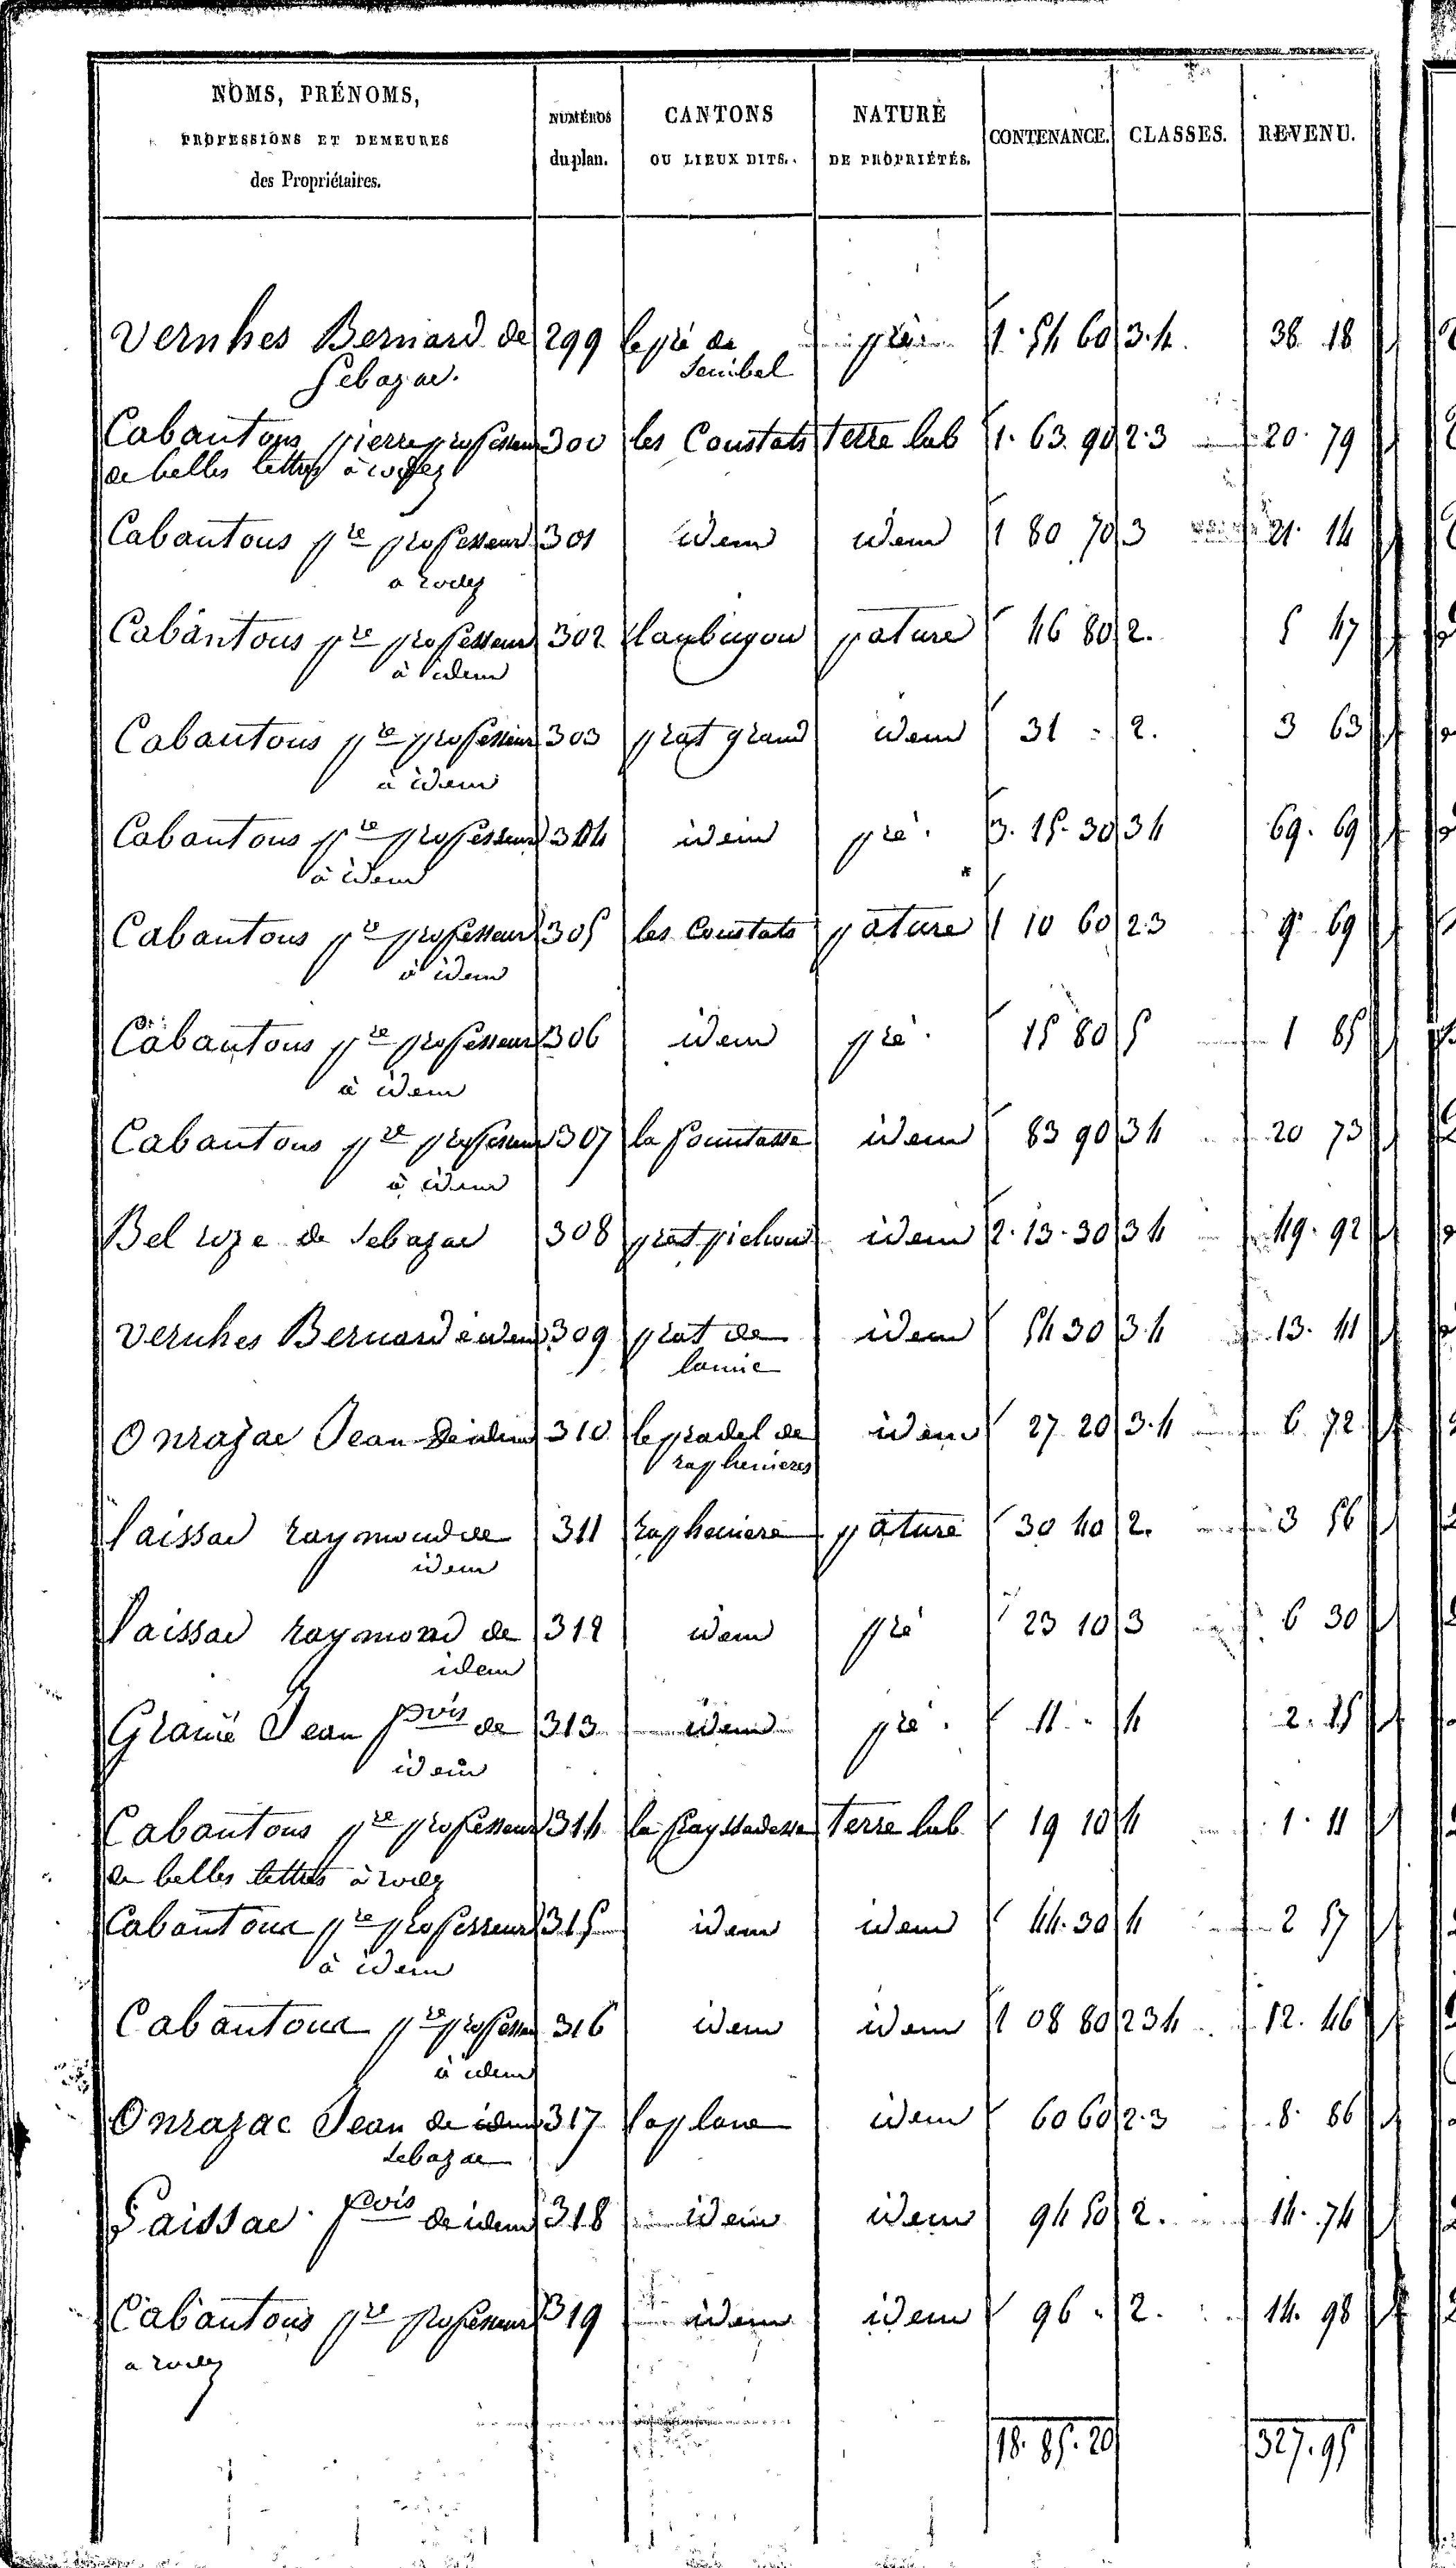 NOMS, PRÉNOMS, PROFESSIONS ET DEMEURES des Propriétaires. NUMÉROS du plan. CANTONS OU LIEUX DITS. NATURE DE PROPRIÉTÉS. CONTENANCE. CLASSES. REVENU.
Vernhes Bernard de 299 le pré de pré 1. 54 60 3.4. 38 18
Sebazac. Senibel
Cabantous pierre professeur 300 les Coustats terre lab 1. 63. 90 2.3 20. 79
de belles lettres à rodez
Cabantous pre professeur 301 idem idem 1 80 70 3 21. 14
a rodez
Cabantous pre professeur 302 pature 46 80 2. 5 47
à idem
Cabantous pre professeur 303 prat grand idem 31 = 2. 3 63
à idem
Cabantous pre professeur 304 idem pré. 3. 15. 30 3 4 69. 69
à idem
Cabantous pre professeur 305 les Coustats pature 1 10 60 2.3 9 69
à idem
Cabantous pre professeur 306 idem pré. 15 80 5 1 85
à idem
Cabantous pre professeur 307 la fountasse idem 83 90 3 4 20 73
à idem
Bel roze de Sebazac 308 prat pichou idem 2. 13. 30 3 4 49. 92
Vernhes Bernard idem 309 prat de idem 54 30 3.4 13. 41
lamic
Onrazac Jean de idem 310 le pradel de idem 27 20 3.4 6 72
raphenieres
laissac raymond de 311 rapheniere pature 30 40 2. 3 56
idem
laissac raymond de 312 idem pré 23 10 3 6 30
idem
Granié Jean fçois de 313 idem pré. 11 - 4 2. 15
idem
Cabantous pre professeur 314 terre lab. 19 10 4 1. 11
de belles lettres à rodez
Cabantous pre professeur 315 idem idem 44. 30 4 2 57
à idem
Cabantous pre professeur 316 idem idem 1 08 80 2 3 4 12. 46
à idem
Onrazac Jean de idem 317 laplane idem 60 60 2.3 8. 86
Sebazac
laissac fçois de idem 318 idem idem 94 50 2. 14. 74
Cabantous pre professeur 319 idem idem 96 . 2. 14. 98
a rodez
18. 85. 20 327. 95